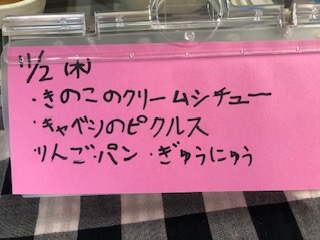 11/2(木)
・きのこのクリームシチュー
・キャベツのピクルス
・りんご・パン・ぎゅうにゅう